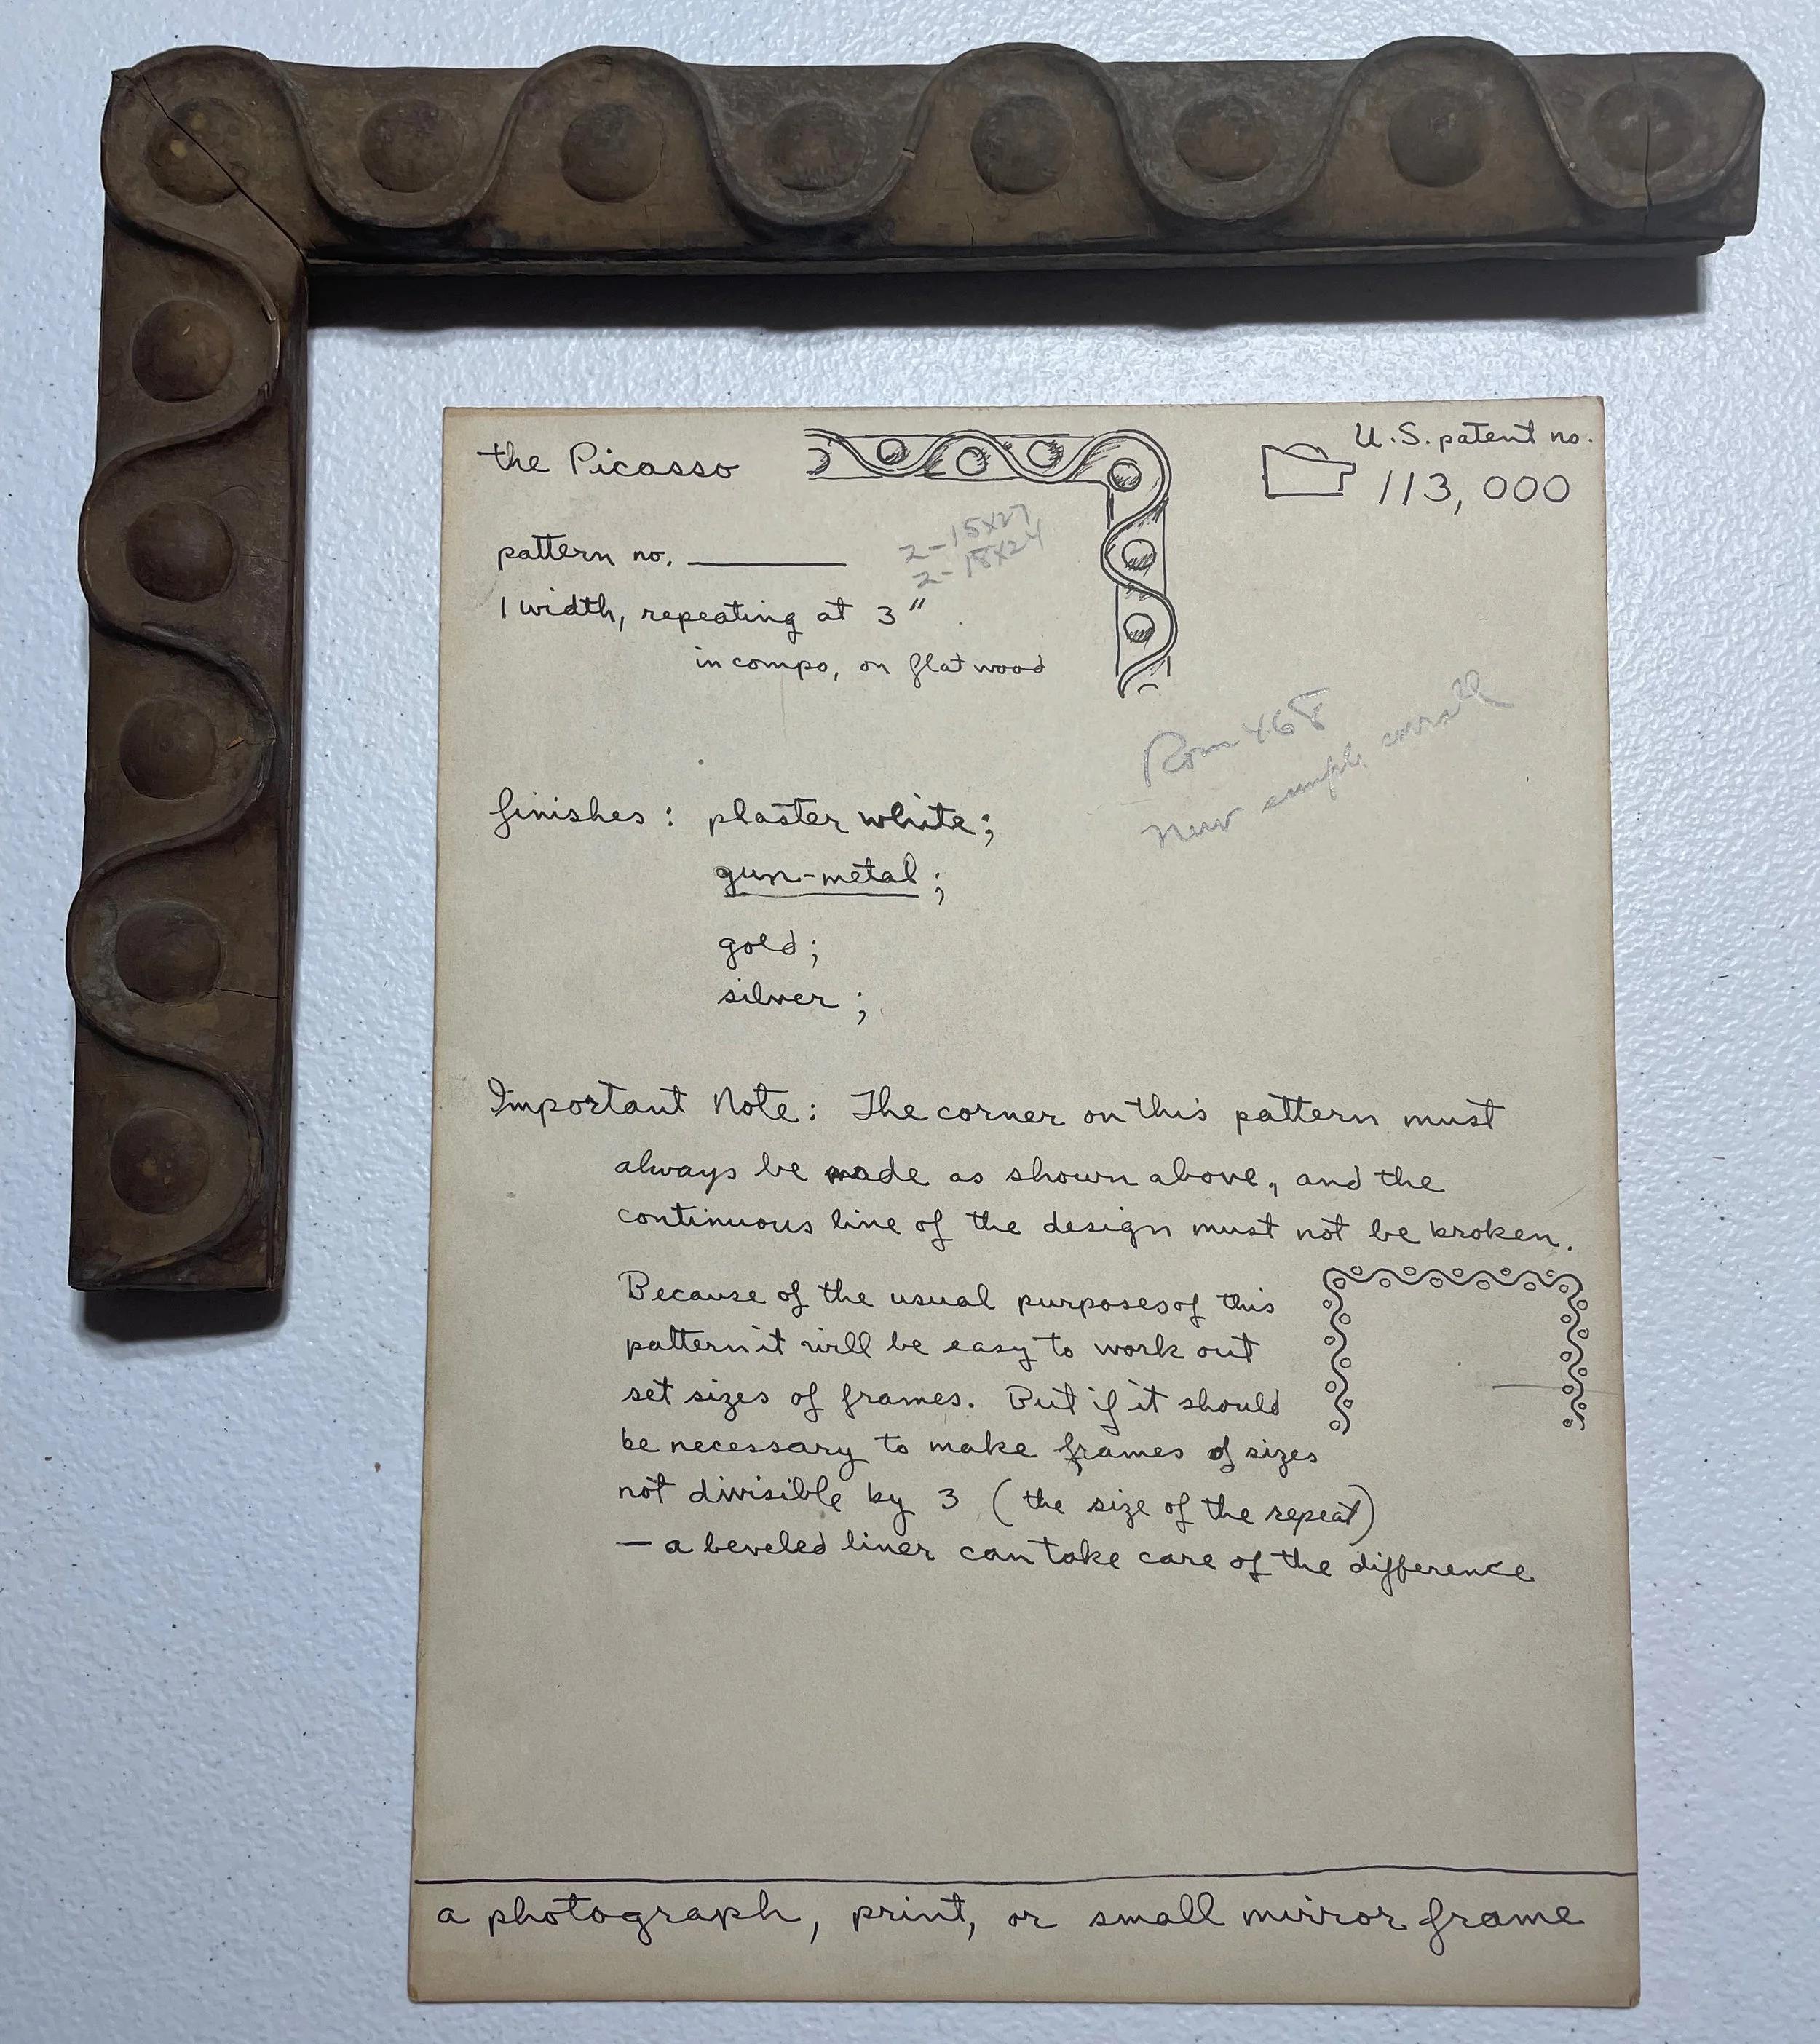 the Picasso
U.S. patent no.
113,000
pattern no.
2-15x27
2-18x24
1 width, repeating at 3"
in compo, on flat wood
Room 468
New sample overall
finishes: plaster white;
gun-metal;
gold;
silver;
Important Note: The corner on this pattern must
always be made as shown above, and the
continuous line of the design must not be broken.
Because of the usual purposes of this
pattern it will be easy to work out
set sizes of frames. But if it should
be necessary to make frames of sizes
not divisible by 3 (the size of the repeat)
— a beveled liner can take care of the difference
a photograph, print, or small mirror frame